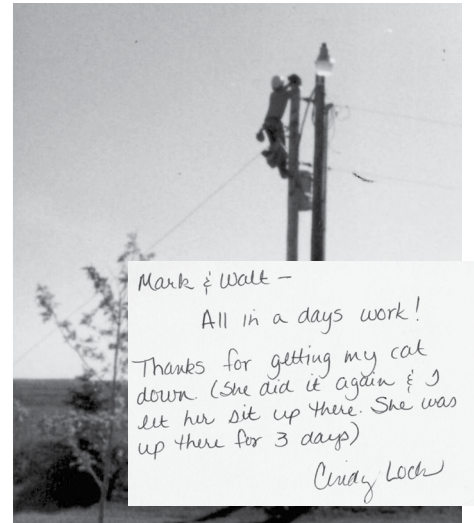 Mark & Walt –
All in a days work!
Thanks for getting my cat
down. (She did it again & I
let her sit up there. She was
up there for 3 days)
Cindy Lock